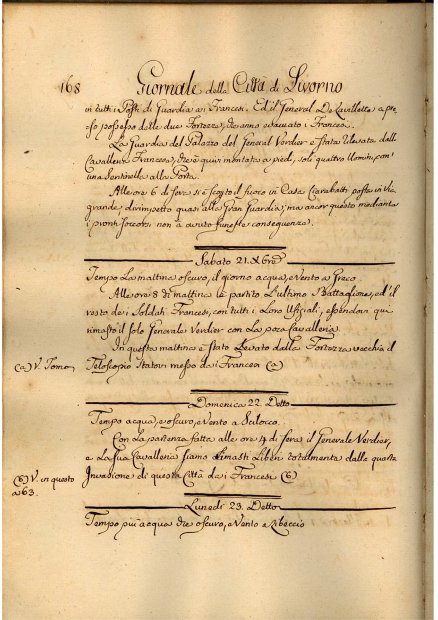 168 Giornale della Città di Livorno
vi tutti i Posti di Guardia ai Francesi. Ed il General De Lavillette a pre-
so possesso delle due Fortezze, che anno evacuato i Francesi.
La Guardia del Palazzo del General Verdier è stata rilevata dalla
Cavalleria Francese, che è quivi montata a piedi, soli quattro Uomini, con
una Sentinella alla Porta.
Alle ore 6 di sera si è scoperto il fuoco in Casa Ciarabatti posta in Via
grande dirimpetto quasi alla Gran Guardia; ma ancor questo mediante
i pronti soccorsi non à avuto funeste conseguenze.
Sabato 21. Xbre
Tempo la mattina oscuro, il giorno acqua, e Vento a Greco.
Alle ore 8 di mattina è partito l'ultimo Battaglione, ed il
resto dei Soldati Francesi, con tutti i Loro Ufiziali, essendovi qui
rimasto il solo Generale Verdier con la poca Cavalleria.
In questa mattina è stato Levato dalla Fortezza vecchia il
(a) V. Tomo Teloscopio Statovi messo dai Francesi (a)
Domenica 22 Detto
Tempo acqua, e oscuro, e Vento a Scilocco.
Con la partenza fatta alle ore 4 di sera il Generale Verdier,
e La Sua Cavalleria siamo rimasti Liberi totalmente dalla quarta
(b) V. in questo Invasione di questa Città dai Francesi (b)
a 63.
Lunedì 23. Detto
Tempo più acqua che oscuro, e Vento a Libeccio